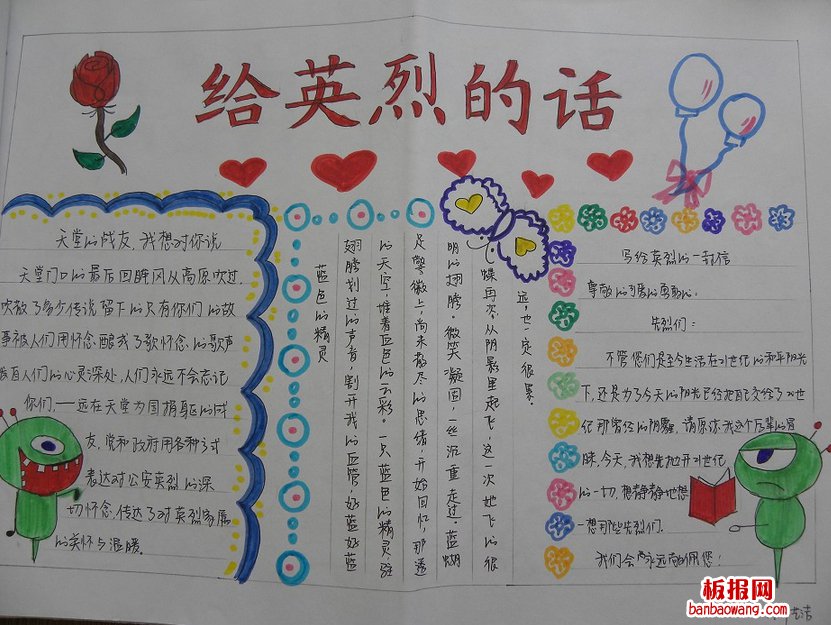 给英烈的话
天堂的战友,我想对你说
天堂门口的最后回眸风从高原吹过,
吹散了多少传说留下的只有你们的故
事被人们用怀念酿成了歌怀念的歌声
人们的心灵深处,人们永远不会忘记
你们,——远在天堂为国捐躯的战
友,党和政府用各种方式
表达对公安英烈的深
切怀念,传达了对英烈家属
的关怀与温暖。
蓝色的精灵
翅膀划过的声音,割开我的血管,好蓝好蓝
的天空,堆着血色的云彩。一只蓝色的精灵,驻
足警徽上,尚未散尽的思绪,开始回忆,那透
明的翅膀。微笑凝固,一丝沉重走过。蓝蝴
蝶再次从阴影里起飞,这一次她飞的很
远,也一定很累。
写给英烈的一封信
尊敬的
先烈们:
不管您们是至今生活在21世纪的和平阳光
下,还是为了今天的阳光已经把自己交给了20世
纪那曾经的阴霾,请原谅我这个后辈的冒
昧,今天,我想先抛开21世纪
的一切,想静静地想
一想那些先烈们.
我们会永远
板报网
banbaowang.com
洁